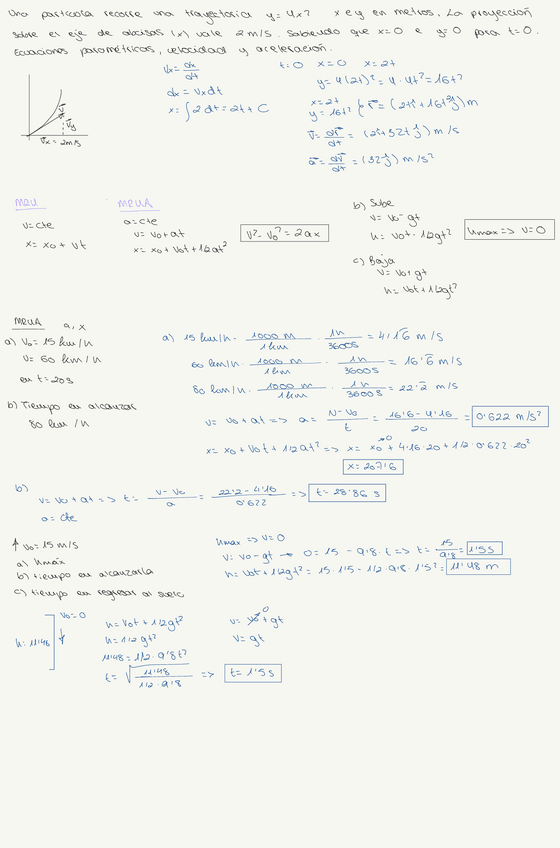 Una partícula recorre una trayectoria y = 4x². x e y en metros. La proyección
sobre el eje de abcisas (x) vale 2 m/s. Sabiendo que x=0 e y=0 para t=0.
Ecuaciones paramétricas, velocidad y aceleración.
Vx = dx/dt
dx = Vx dt
x = ∫ 2 dt = 2t + C
t=0 x=0 x=2t
y = 4(2t)² = 4·4t² = 16t²
x = 2t
y = 16t² } r⃗ = (2t i + 16t² j) m
v⃗ = dr⃗/dt = (2i + 32t j) m/s
a⃗ = dv⃗/dt = (32j) m/s²
Vy
Vx = 2m/s
MRU
v = cte
x = x0 + vt
MRUA
a = cte
v = v0 + at
x = x0 + v0t + 1/2at²
V² - V0² = 2ax
b) Sube
v = v0 - gt
h = v0t - 1/2gt²
hmax => v=0
c) Baja
v = v0 + gt
h = v0t + 1/2gt²
MRUA a, x
a) V0 = 15 km/h
V = 60 km/h
en t = 20s
b) Tiempo en alcanzar
80 km/h
a) 15 km/h · 1000 m/1km · 1h/3600s = 4'16 m/s
60 km/h · 1000 m/1km · 1h/3600s = 16'6 m/s
80 km/h · 1000 m/1km · 1h/3600s = 22'2 m/s
v = v0 + at => a = (v - v0)/t = (16'6 - 4'16)/20 = 0'622 m/s²
x = x0 + v0t + 1/2at² => x = x0 + 4'16·20 + 1/2·0'622·20²
x = 207'6
b)
v = v0 + at => t = (v - v0)/a = (22'2 - 4'16)/0'622 => t = 28'86 s
a = cte
↑ v0 = 15 m/s
a) hmáx
b) tiempo en alcanzarla
c) tiempo en regresar al suelo
hmax => v=0
v = v0 - gt → 0 = 15 - 9'8·t => t = 15/9'8 = 1'5s
h = v0t + 1/2gt² = 15·1'5 - 1/2·9'8·1'5² = 11'48 m
h = 11'48
v0 = 0
h = v0t + 1/2gt²
h = 1/2gt²
11'48 = 1/2·9'8t²
t = √(11'48/(1/2·9'8)) => t = 1'5s
v = v0 + gt
v = gt